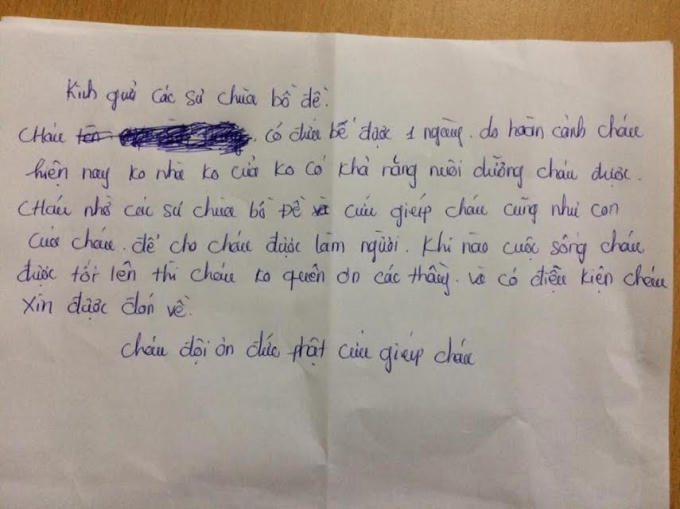 Kính gửi các sư chùa bồ đề.
CHáu tên có đứa bế được 1 ngàng. do hoàn cảnh cháu
hiện nay ko nhà ko cửa ko có khả năng nuôi dưỡng cháu được.
CHáu nhờ các sư chùa bồ Đề và cứu giúp cháu cũng như con
của cháu. để cho cháu được làm người. Khi nào cuộc sống cháu
được tốt lên thì cháu ko quên ơn các thầy. và có điều kiện cháu
xin được đón về.
Cháu đội ơn đức phật cứu giúp cháu